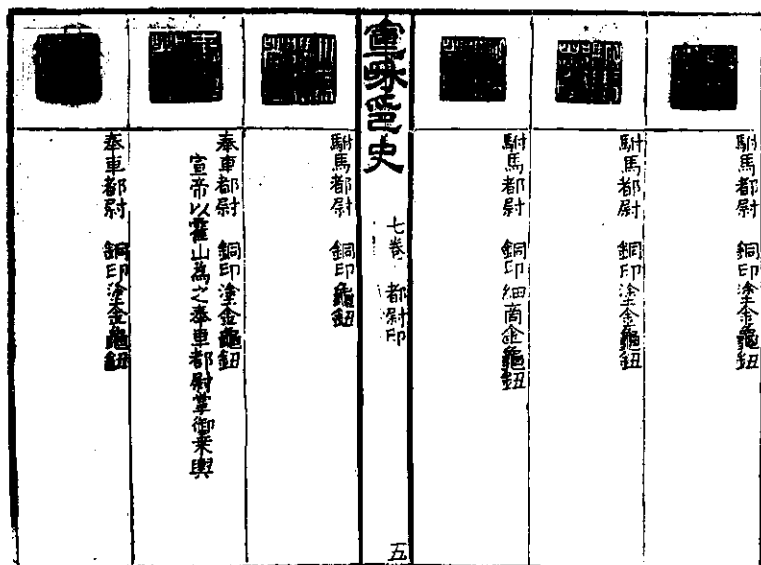 駙馬都尉 銅印塗金龜鈕
駙馬都尉 銅印塗金龜鈕
駙馬都尉 銅印細商金龜鈕
宣和印史
七卷 都尉印
五
駙馬都尉 銅印龜鈕
奉車都尉 銅印塗金龜鈕
宣帝以霍山為之奉車都尉掌御乗輿
奉車都尉 銅印塗金龜鈕